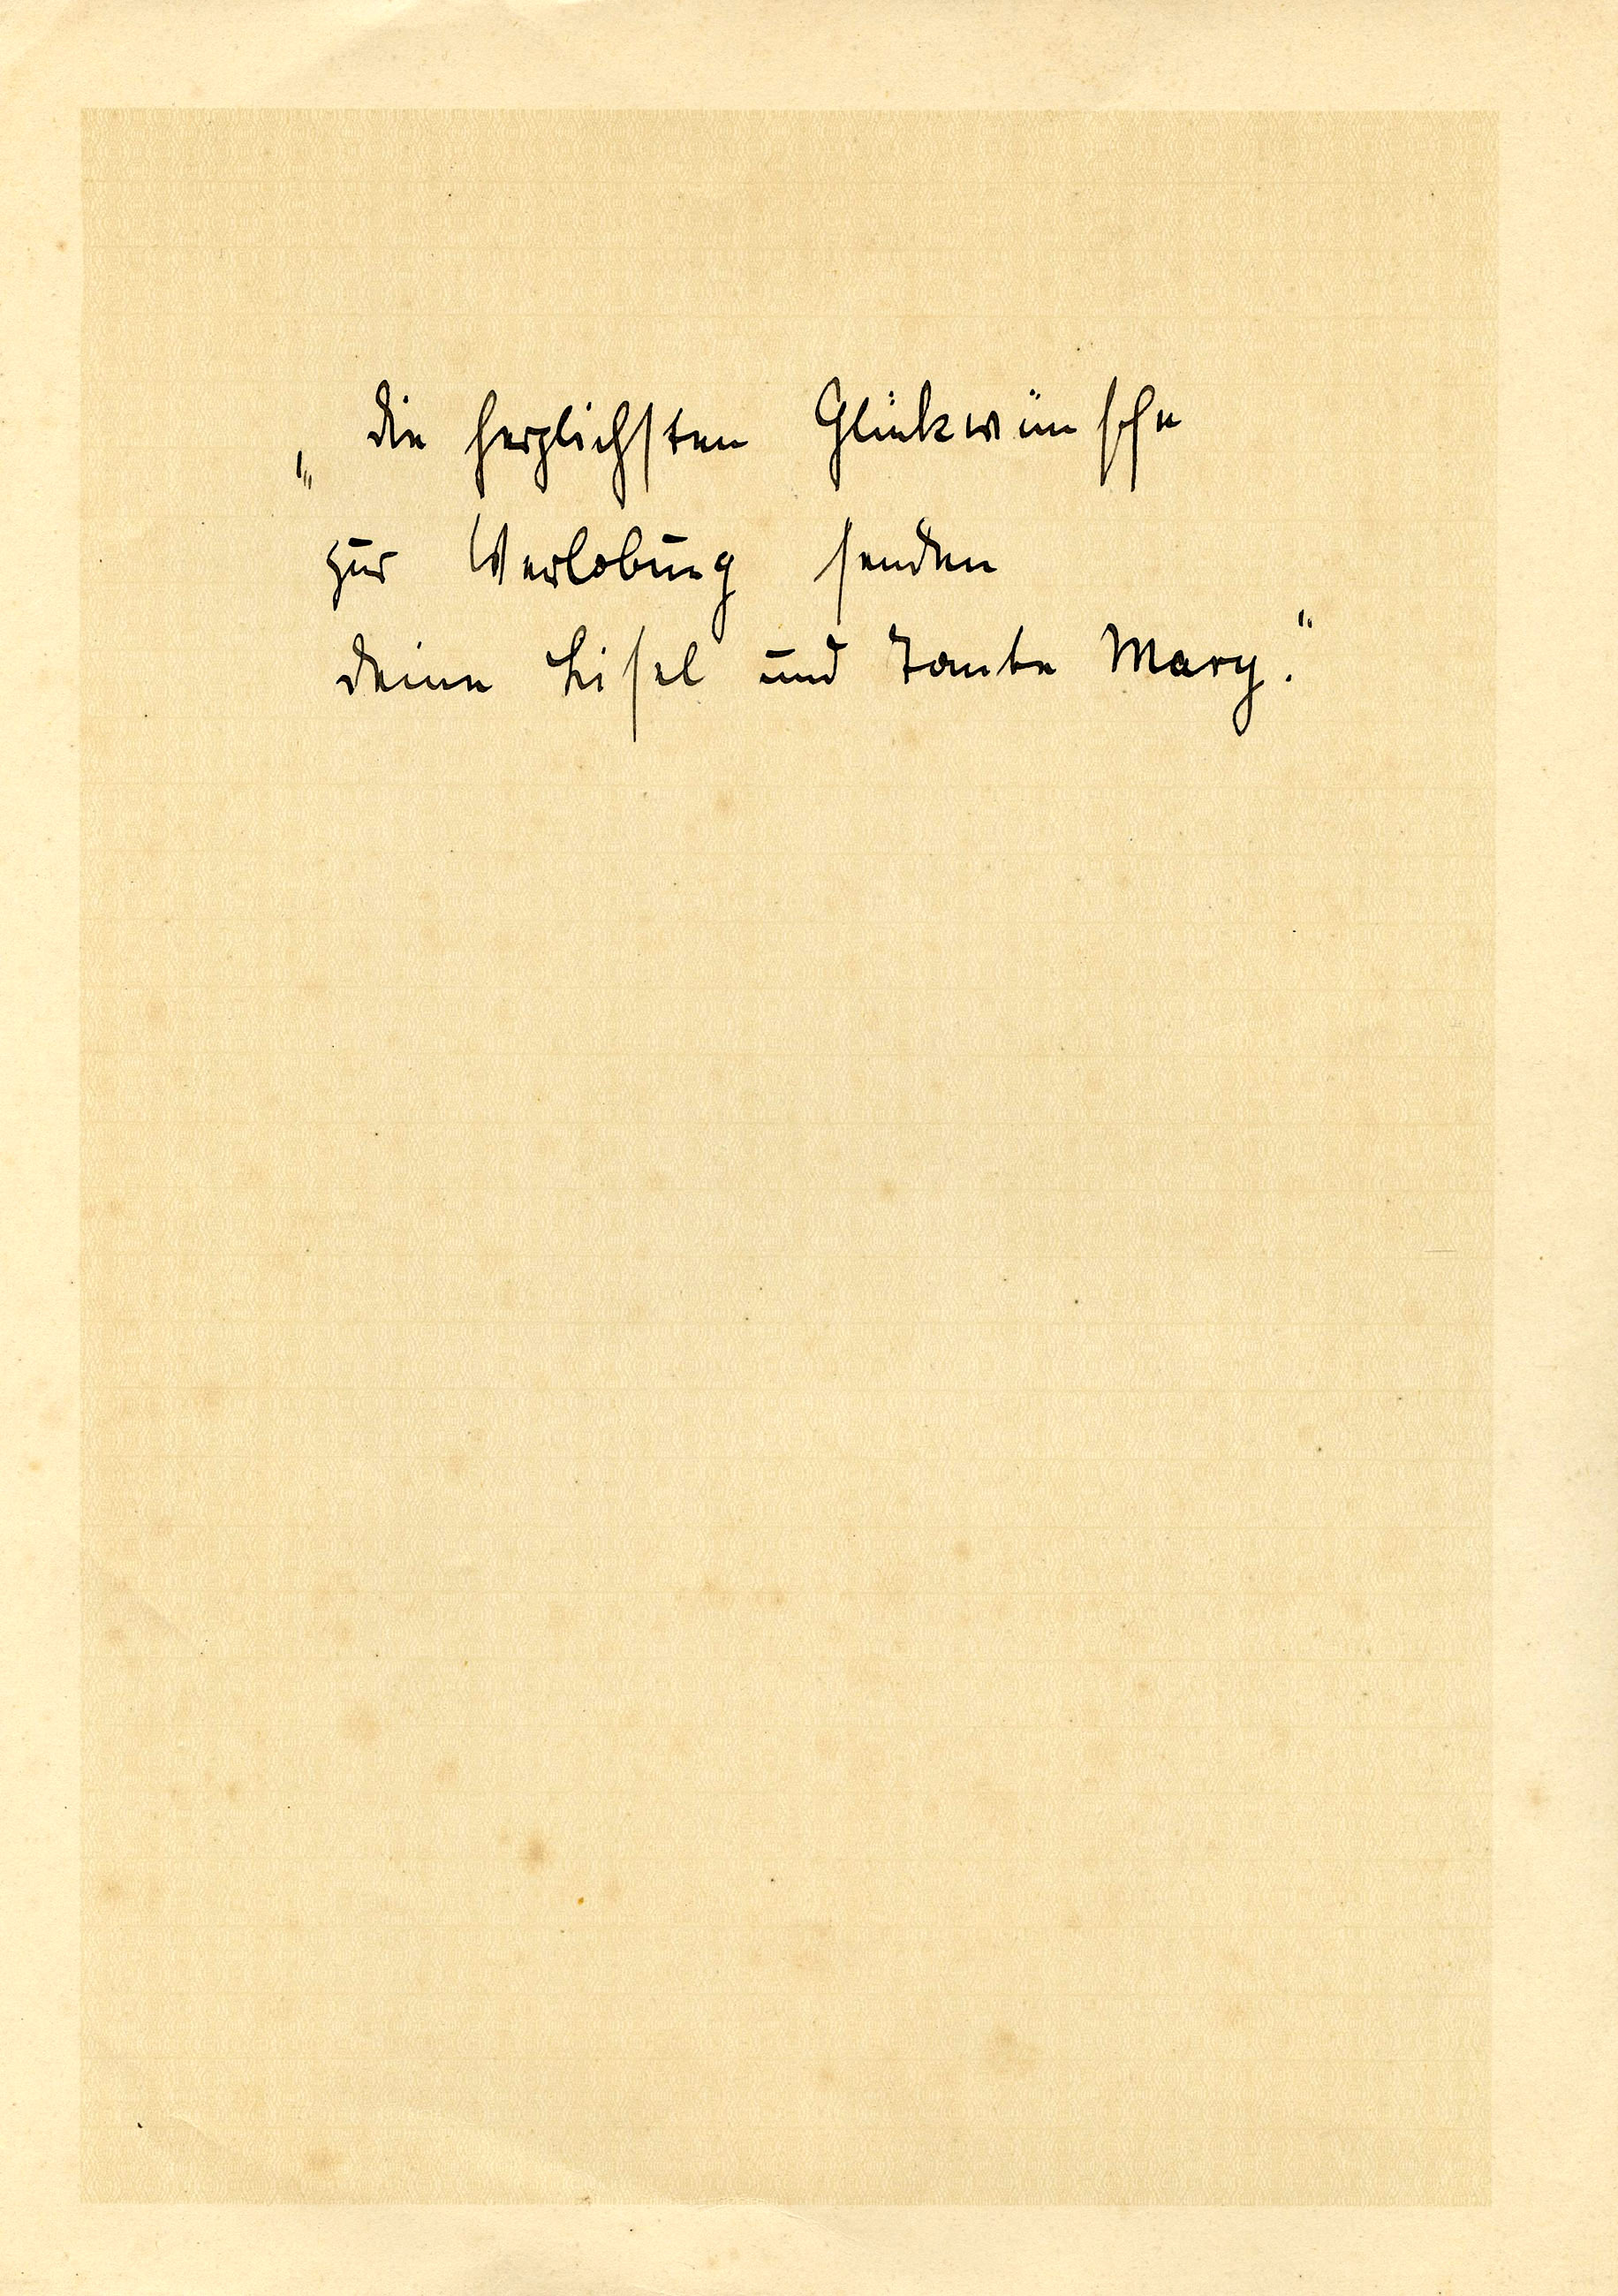 „die herzlichsten Glückwünsche
zur Verlobung senden
deine Lisel und Tante Mary."